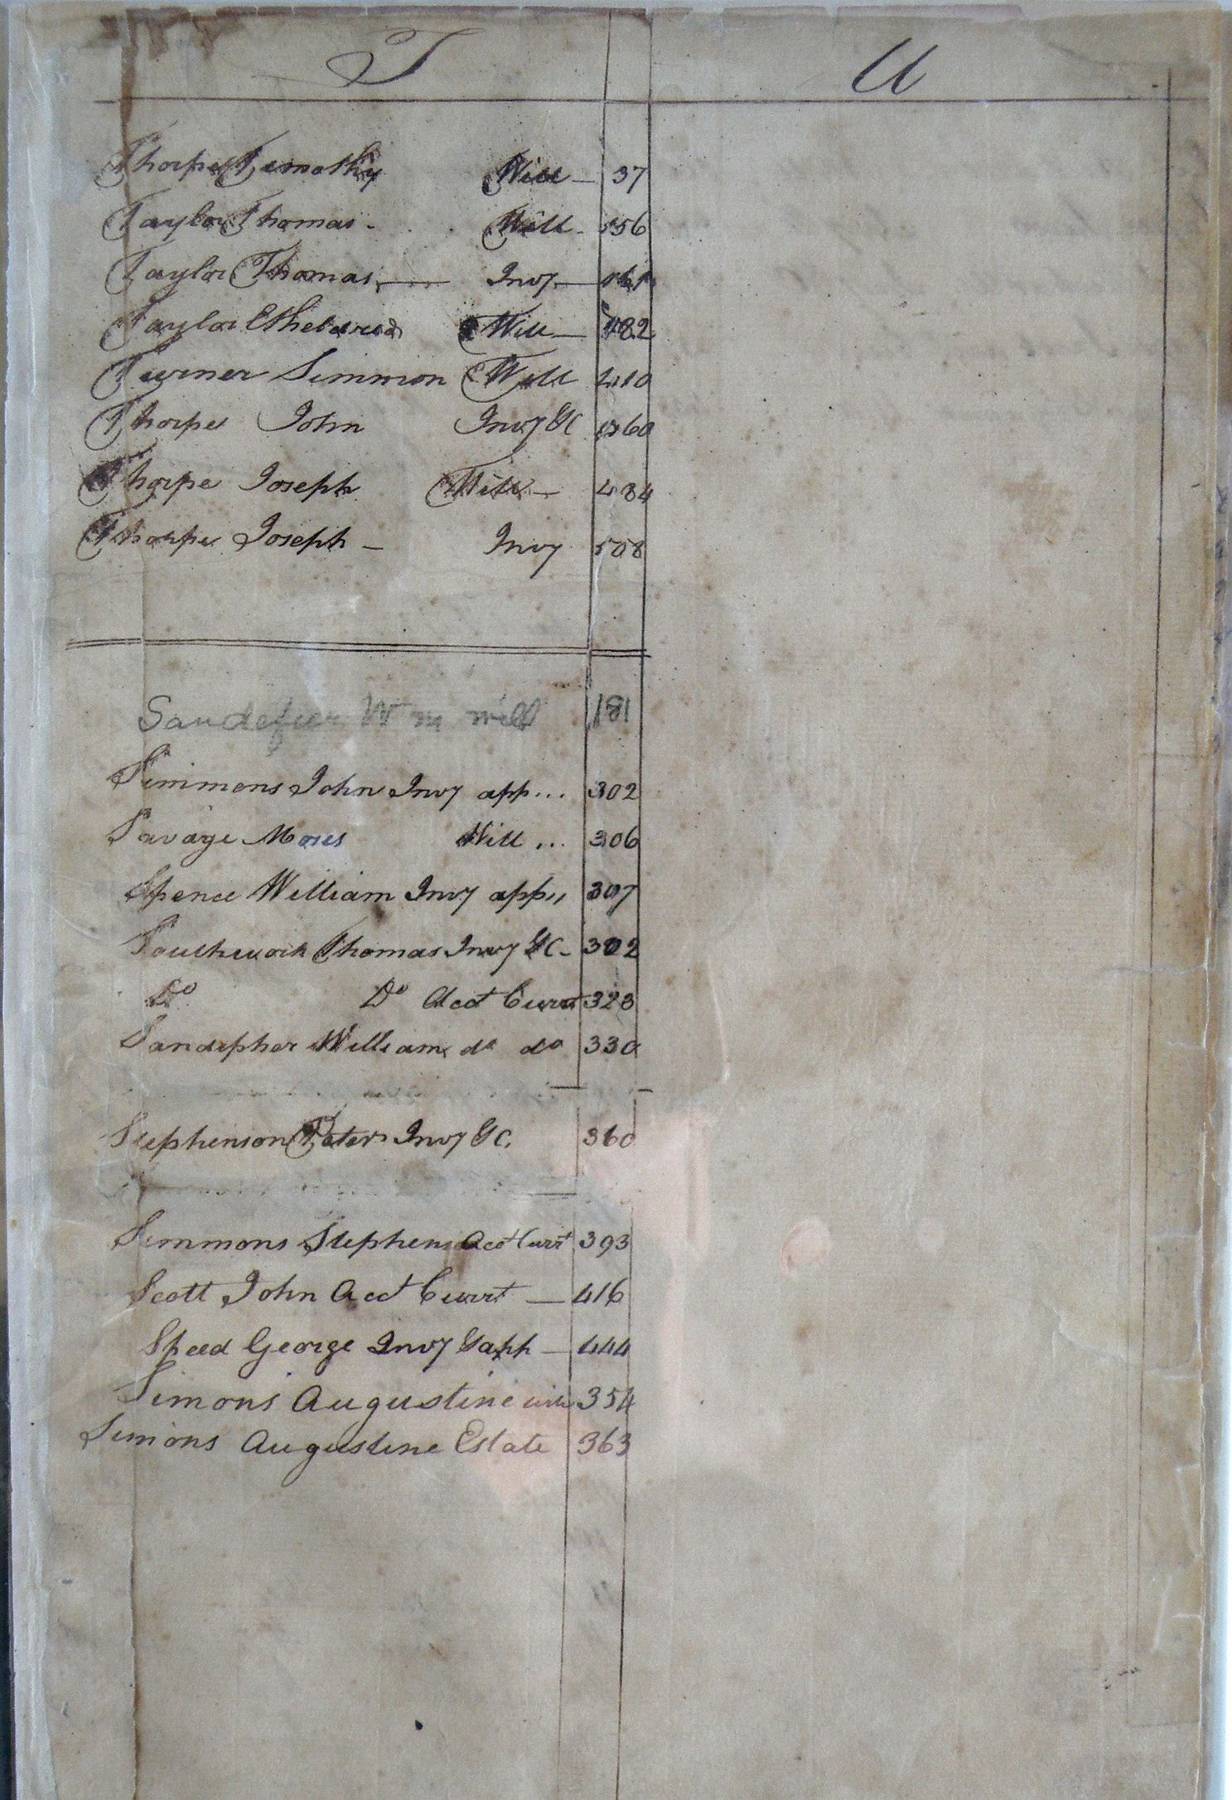 T
U
Thorpe Timothy Will — 37
Taylor Thomas - Will - 156
Taylor Thomas — Invy — 161
Taylor Etheldred Will — 182
Turner Simmon Will 410
Thorpe John Invy &C 460
Thorpe Joseph Will — 484
Thorpe Joseph — Invy 508
Sandefur Wm will 181
Simmons John Invy app... 302
Savage Moses Will ... 306
Spence William Invy app,, 307
Southwork Thomas Invy &C - 302
Do Do Acct Currt 323
Sandipher William do do 330
Stephenson Peter Invy &C. 360
Simmons Stephen Acct Currt 393
Scott John Acct Currt — 416
Speed George Invy & app — 444
Simons Augustine will 354
Simons Augustine Estate 363